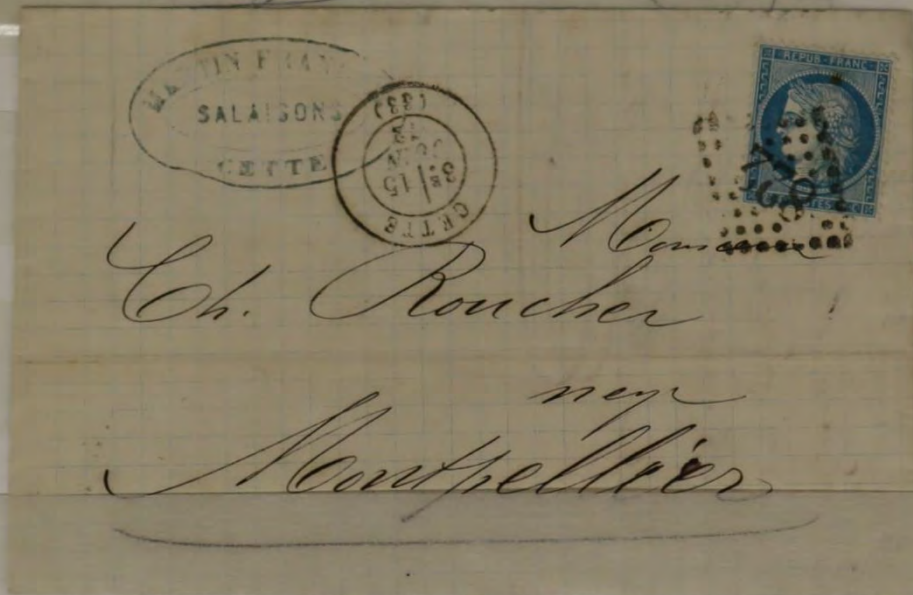 SALAISONS
CETTE
CETTE
3E
15
JUIN
(33)
REPUB · FRANC
Monsieur
Ch. Roucher
neg
Montpellier